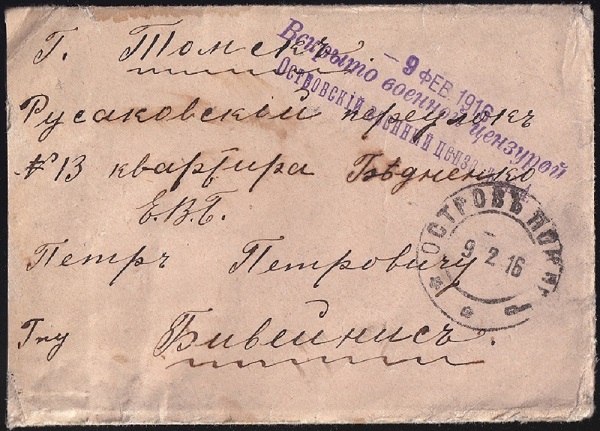 Г. Томскъ.
Русаковскій переулокъ
№ 13 квартира Бѣдненко
Е.В.Б.
Петръ Петровичу
Гну Бивейнисъ.
- 9 ФЕВ. 1916
Вскрыто военной цензурой
Островскій военный
ОСТРОВЪ ПСК
9 2 16